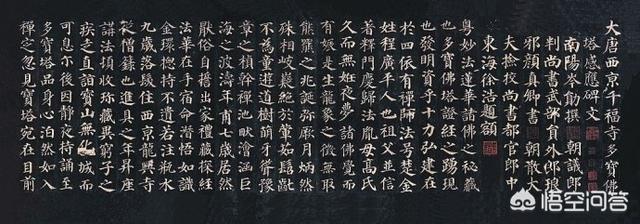 大唐西京千福寺多寶佛
塔感應碑文
南陽岑勛撰 朝議郎
判尚書武部員外郎琅
邪顏真卿書 朝散大
夫檢校尚書都官郎中
東海徐浩題額
粵妙法蓮華諸佛之秘藏
也多寶佛塔證經之踴現
也發明資乎十力弘建在
於四依有禪師法号楚金
姓程廣平人也祖父並信
著釋門慶歸法胤母高氏
久而無妊夜夢諸佛覺而
有娠是生龍象之徵無取
熊羆之兆誕弥厥月炳然
殊相岐嶷絕於葷茹髫齔
不為童遊道樹萌牙聳豫
章之楨幹禪池畎澮涵巨
海之波濤年甫七歲居然
厭俗自誓出家禮藏探經
法華在手宿命潛悟如識
金環總持不遺若注瓶水
九歲落髮住西京龍興寺
從僧籙也進具之年昇座
講法頂收珍藏異窮子之
疾走直詣寶山無化城而
可息尔後因靜夜持誦至
多寶塔品身心泊然如入
禪定忽見寶塔宛在目前
悟空问答